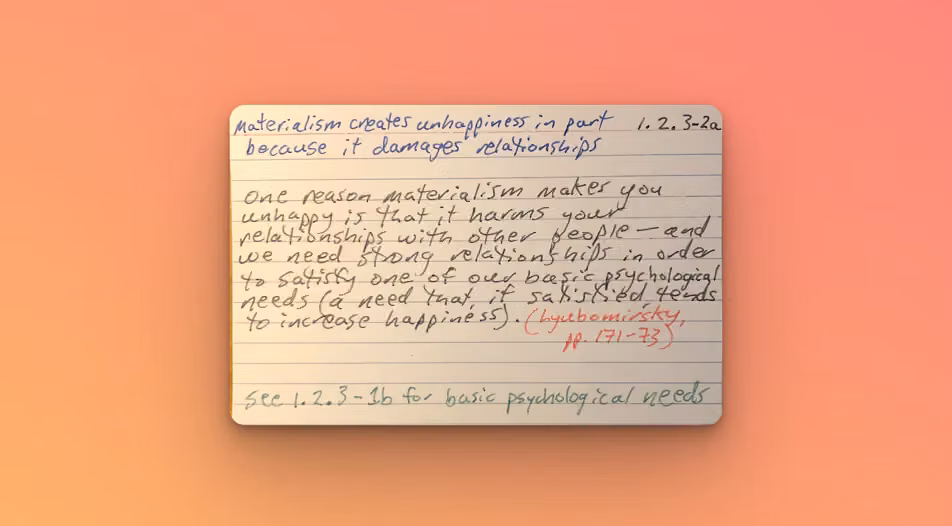 Materialism creates unhappiness in part 1.2.3-2a
because it damages relationships
One reason materialism makes you
unhappy is that it harms your
relationships with other people — and
we need strong relationships in order
to satisfy one of our basic psychological
needs (a need that, if satisfied tends
to increase happiness). (Lyubomirsky,
pp. 171-73)
See 1.2.3-1b for basic psychological needs